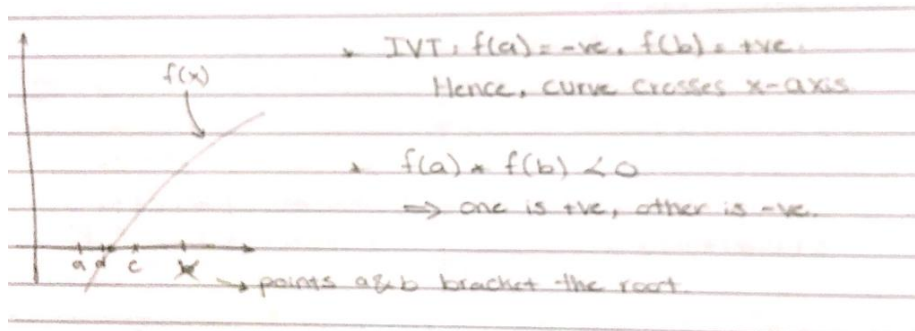 * IVT: f(a) = -ve, f(b) = +ve.
Hence, curve crosses x-axis
f(x)
* f(a) * f(b) < 0
⇒ one is +ve, other is -ve.
a d c b
→ points a&b bracket the root.